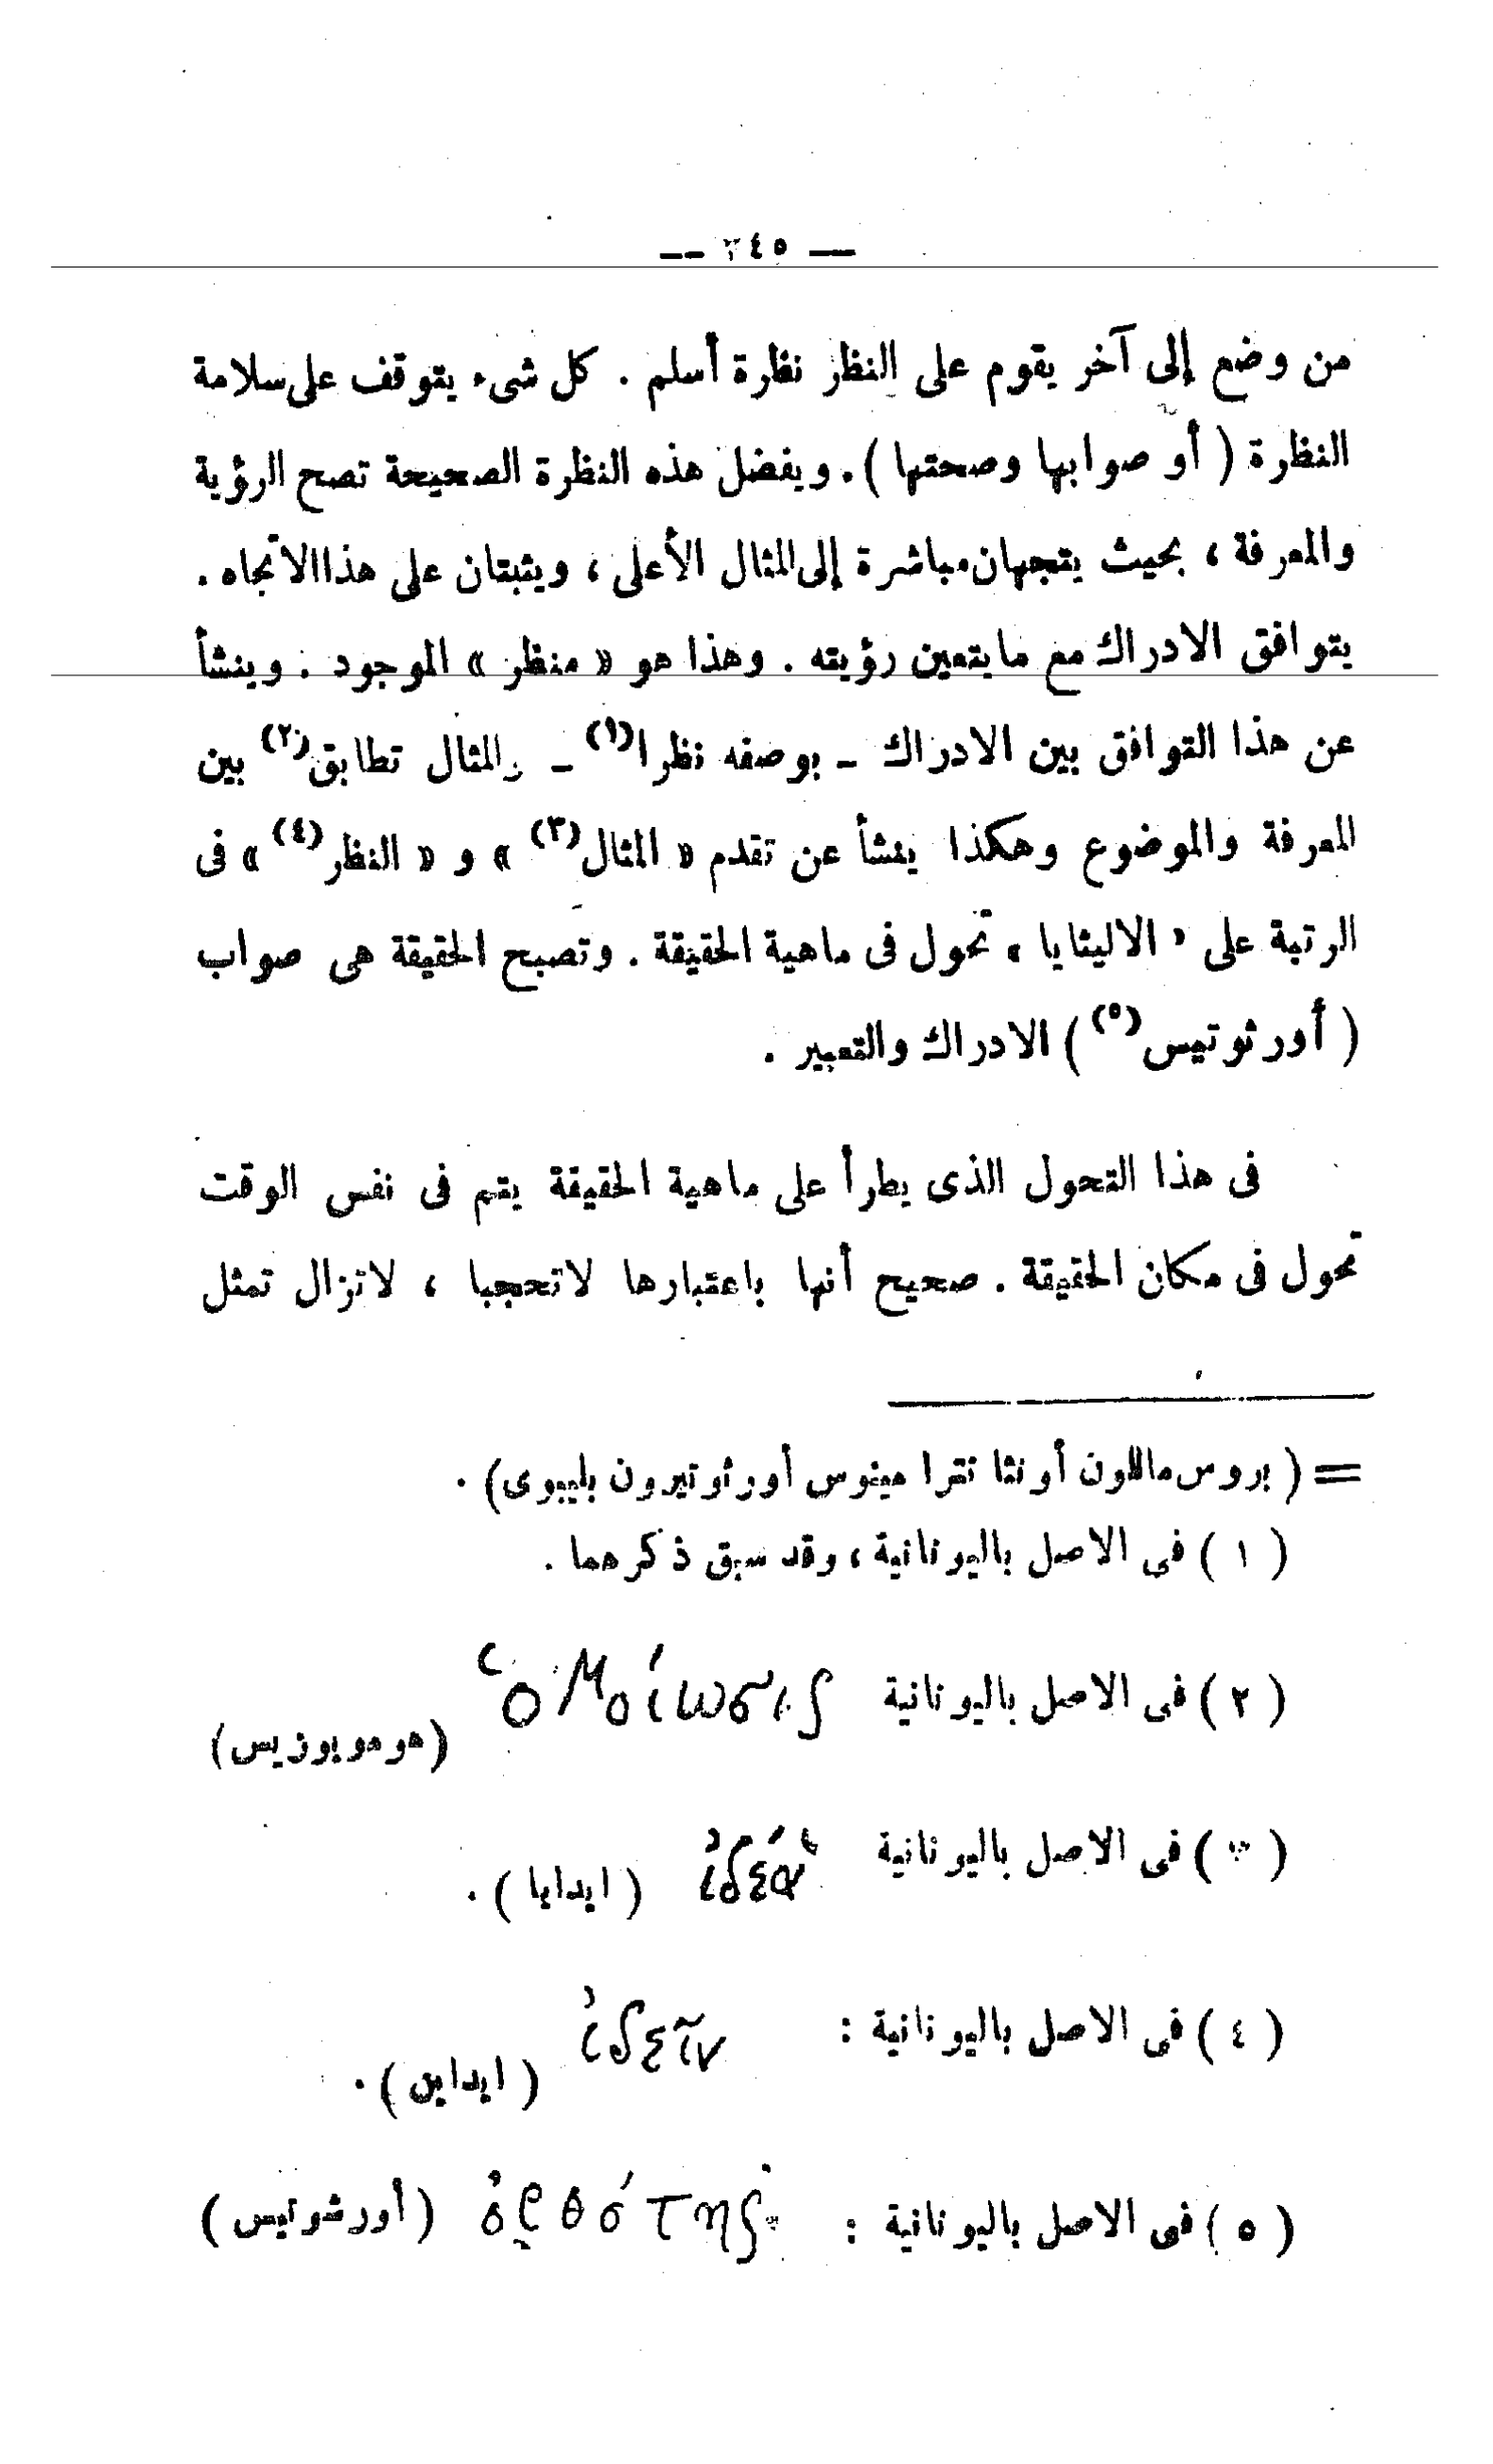 — ٣٤٥ —
من وضع إلى آخر يقوم على النظر نظرة أسلم . كل شىء يتوقف على سلامة
النظرة ( أو صوابها وصحتها ) . وبفضل هذه النظرة الصحيحة تصح الرؤية
والمعرفة ، بحيث يتجهان مباشرة إلى المثال الأعلى ، ويثبتان على هذا الاتجاه .
يتوافق الادراك مع ما يتعين رؤيته . وهذا هو « منظر » الموجود . وينشأ
عن هذا التوافق بين الادراك – بوصفه نظرا (١) – والمثال تطابق (٢) بين
المعرفة والموضوع وهكذا ينشأ عن تقدم « المثال (٣) » و « النظر (٤) » فى
الرتبة على « الاليثايا » تحول فى ماهية الحقيقة . وتصبح الحقيقة هى صواب
( أورثوتيس (٥) ) الادراك والتعبير .
فى هذا التحول الذى يطرأ على ماهية الحقيقة يتم فى نفس الوقت
تحول فى مكان الحقيقة . صحيح أنها باعتبارها لاتحجبا ، لاتزال تمثل
= ( بروس ماللون أونثا تترا مينوس أورثوتيرون بليبوى ) .
( ١ ) فى الاصل باليونانية ، وقد سبق ذكرهما .
( ٢ ) فى الاصل باليونانية ὁμοίωσις ( هوموبوزيس )
( ٣ ) فى الاصل باليونانية ἰδέα ( ايدايا ) .
( ٤ ) فى الاصل باليونانية : ἰδεῖν ( ايداين ) .
( ٥ ) فى الاصل باليونانية : ὀρθότης ( أورثوتيس )